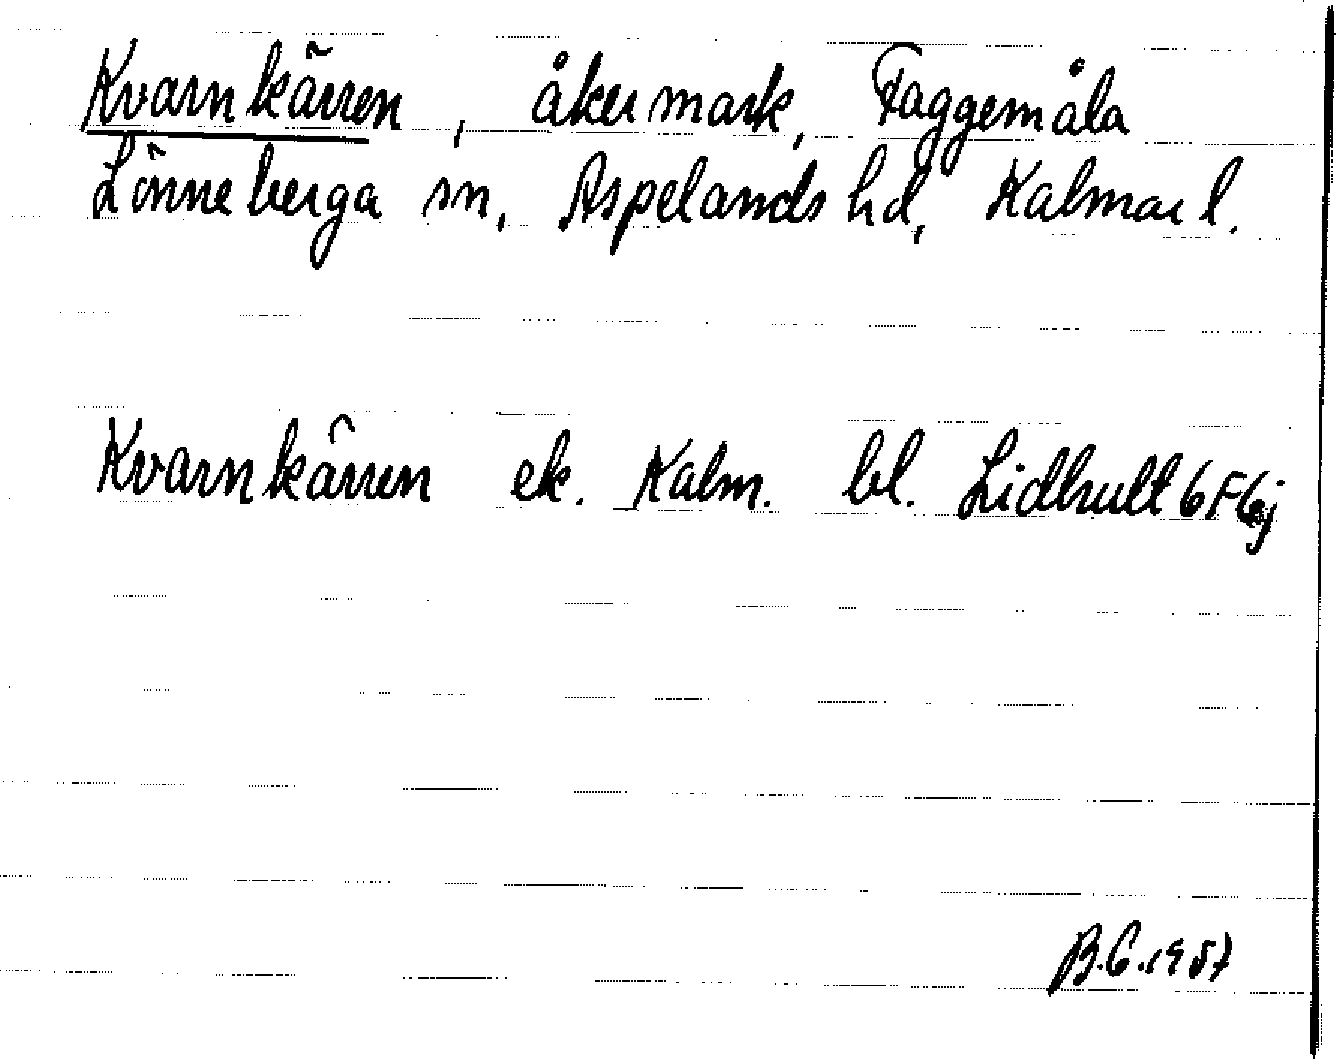 Kvarnkärren, åkermark, Faggemåla
Lönneberga sn, Aspelands hd, Kalmar l.
Kvarnkärren ek. Kalm. bl. Lidhult 6F6j
B.G.1957